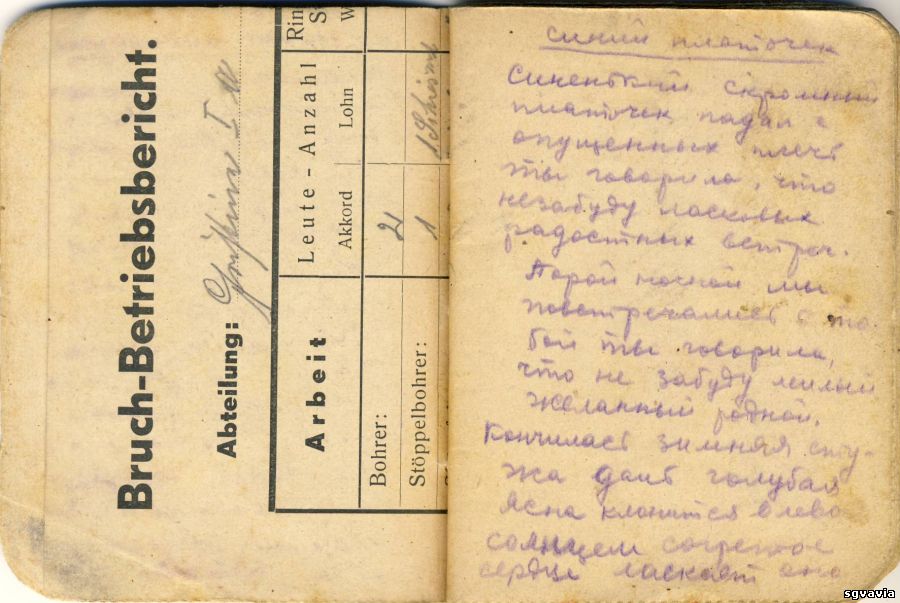 Bruch-Betriebsbericht.
Abteilung:
Arbeit
Leute-Anzahl
Akkord Lohn
Bohrer: 2
Stöppelbohrer: 1 1
синий платочек
Синенький скромный
платочек падал с
опущенных плеч
ты говорила, что
незабуду ласковых
радостных встреч.
Порой ночной мы
повстречались с то
бой ты говорила,
что не забуду милый
желанный родной.
Кончилась зимняя сту-
жа даль голубая
ясна клонится влево
солнцем согретое
сердце ласкает она
sgvavia